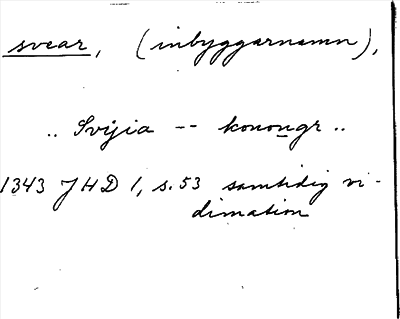 svear, (inbyggarnamn),
.. Svijia -- konongr ..
1343 JHD 1, s. 53 samtidig vi-
dimation